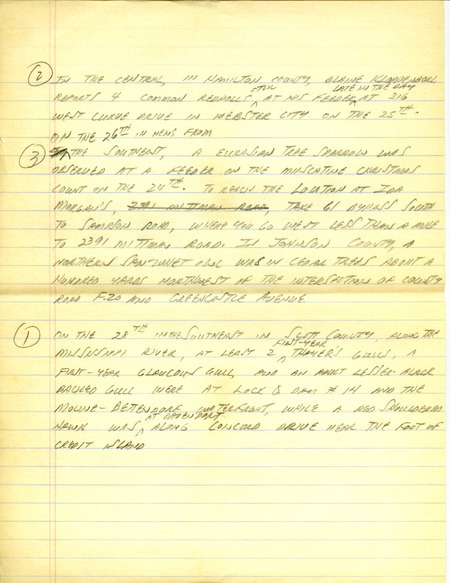 ② IN THE CENTRAL, IN HAMILTON COUNTY, BLAINE KLOPPENBORG
STILL LATE IN THE DAY
REPORTS 4 COMMON REDPOLLS AT HIS FEEDER AT 316
WEST CURVE DRIVE IN WEBSTER CITY ON THE 25TH.
ON THE 26TH IN NEWS FROM
③ THE SOUTHEAST, A EURASIAN TREE SPARROW WAS
OBSERVED AT A FEEDER ON THE MUSCATINE CHRISTMAS
COUNT ON THE 26TH. TO REACH THE LOCATION AT IDA
MORGAN'S, 2391 MITTMAN ROAD, TAKE 61 BYPASS SOUTH
TO SAMPSON ROAD, WHERE YOU GO WEST LESS THAN A MILE
TO 2391 MITTMAN ROAD. IN JOHNSON COUNTY, A
NORTHERN SAW-WHET OWL WAS IN CEDAR TREES ABOUT A
HUNDRED YARDS NORTHWEST OF THE INTERSECTION OF COUNTY
ROAD F-20 AND GREENCASTLE AVENUE
① ON THE 28TH IN THE SOUTHEAST IN SCOTT COUNTY, ALONG THE
FIRST-YEAR
MISSISSIPPI RIVER, AT LEAST 2 THAYER'S GULLS, A
FIRST-YEAR GLAUCOUS GULL, AND AN ADULT LESSER BLACK
BACKED GULL WERE AT LOCK & DAM #14 AND THE
MOLINE-BETTENDORF WATERFRONT, WHILE A RED SHOULDERED
AT DAVENPORT
HAWK WAS ALONG CONCORD DRIVE NEAR THE FOOT OF
CREDIT ISLAND